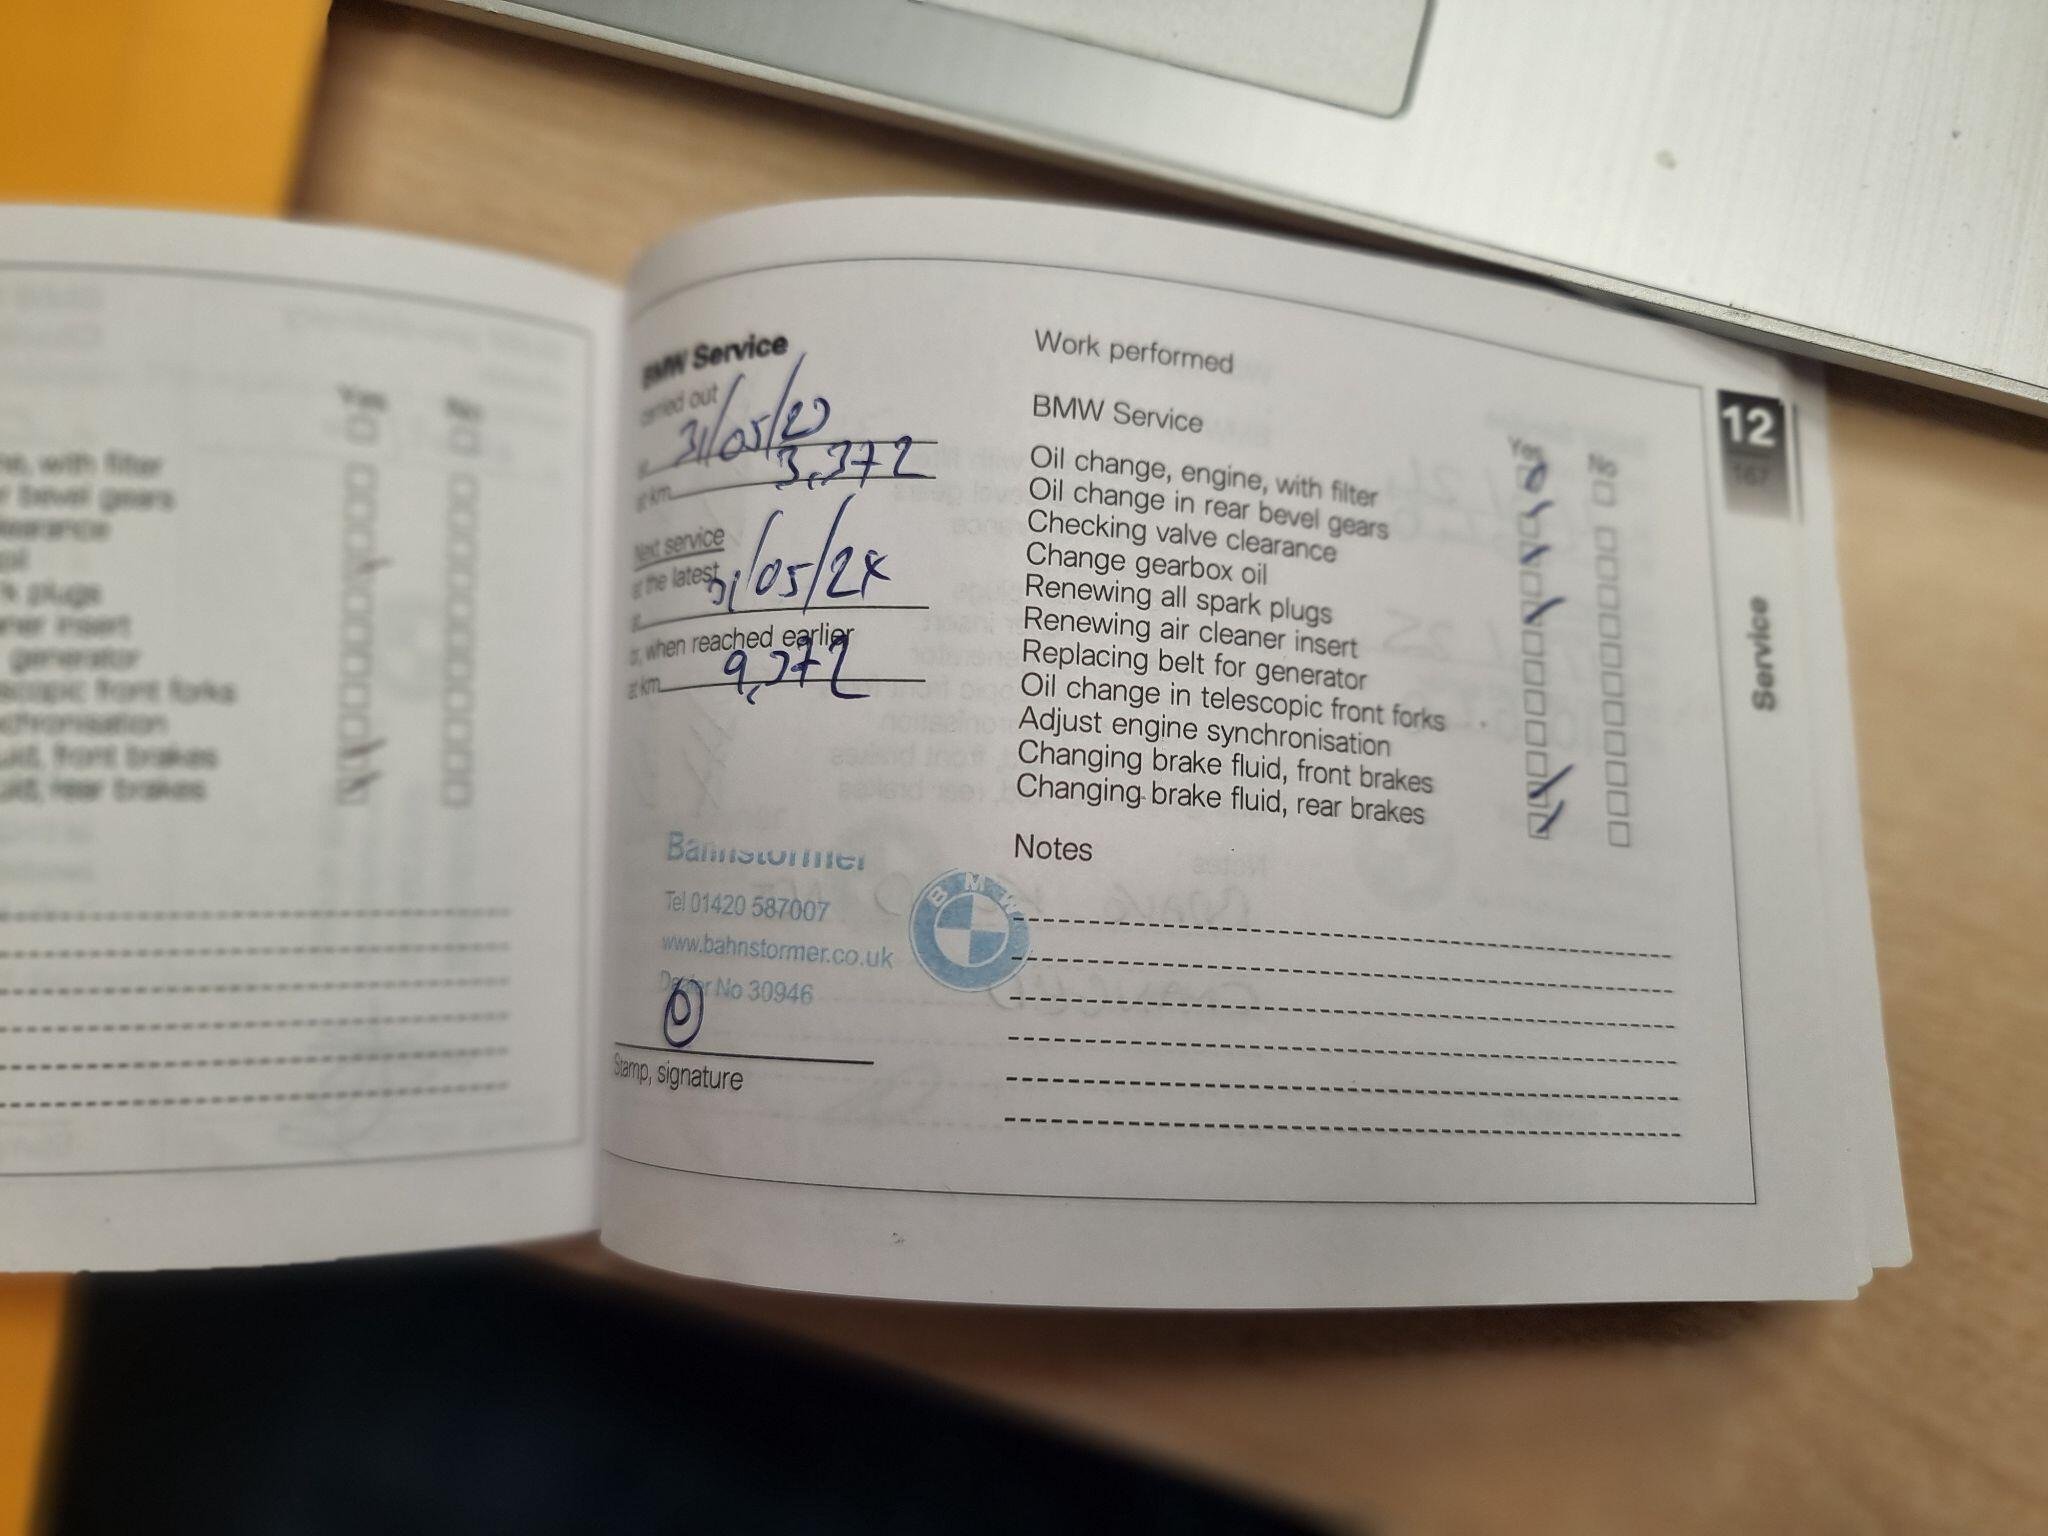 Yes No
with filter
bevel gears
plugs
insert
generator
front forks
front brakes
rear brakes
BMW Service
carried out
31/05/23
at km 3,372
Next service
at the latest
31/05/24
or, when reached earlier
at km 9,372
Bahnstormer
Tel 01420 587007
www.bahnstormer.co.uk
Dealer No 30946
BMW
Stamp, signature
Work performed
Yes No
BMW Service
Oil change, engine, with filter
Oil change in rear bevel gears
Checking valve clearance
Change gearbox oil
Renewing all spark plugs
Renewing air cleaner insert
Replacing belt for generator
Oil change in telescopic front forks
Adjust engine synchronisation
Changing brake fluid, front brakes
Changing brake fluid, rear brakes
Notes
12
167
Service